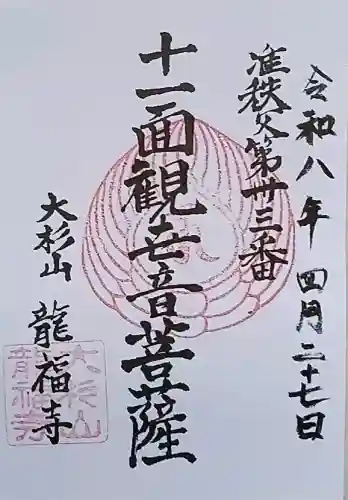 令和八年四月二十七日
准秩父第卅三番
十一面観世音菩薩
大杉山
龍福寺
大杉山
龍福寺